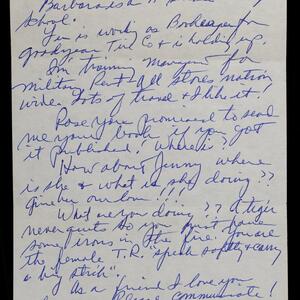 school.
is work as Bookeeper for
goodyear Tire Co & is holding up.
I'm train manager for
Military Rent All stores nation
wide. Lots of travel & I like it!
Rose you promised to send
me your book if you got
it published! where is?
How about Jenny where
is she & what is she doing??
give her our love!!!
What are you doing?? A tiger
never quits so you must have
some irons in the fire. You are
the female T.R. "speak softly & carry
a big stick".
As a friend I love you
Please communicate!